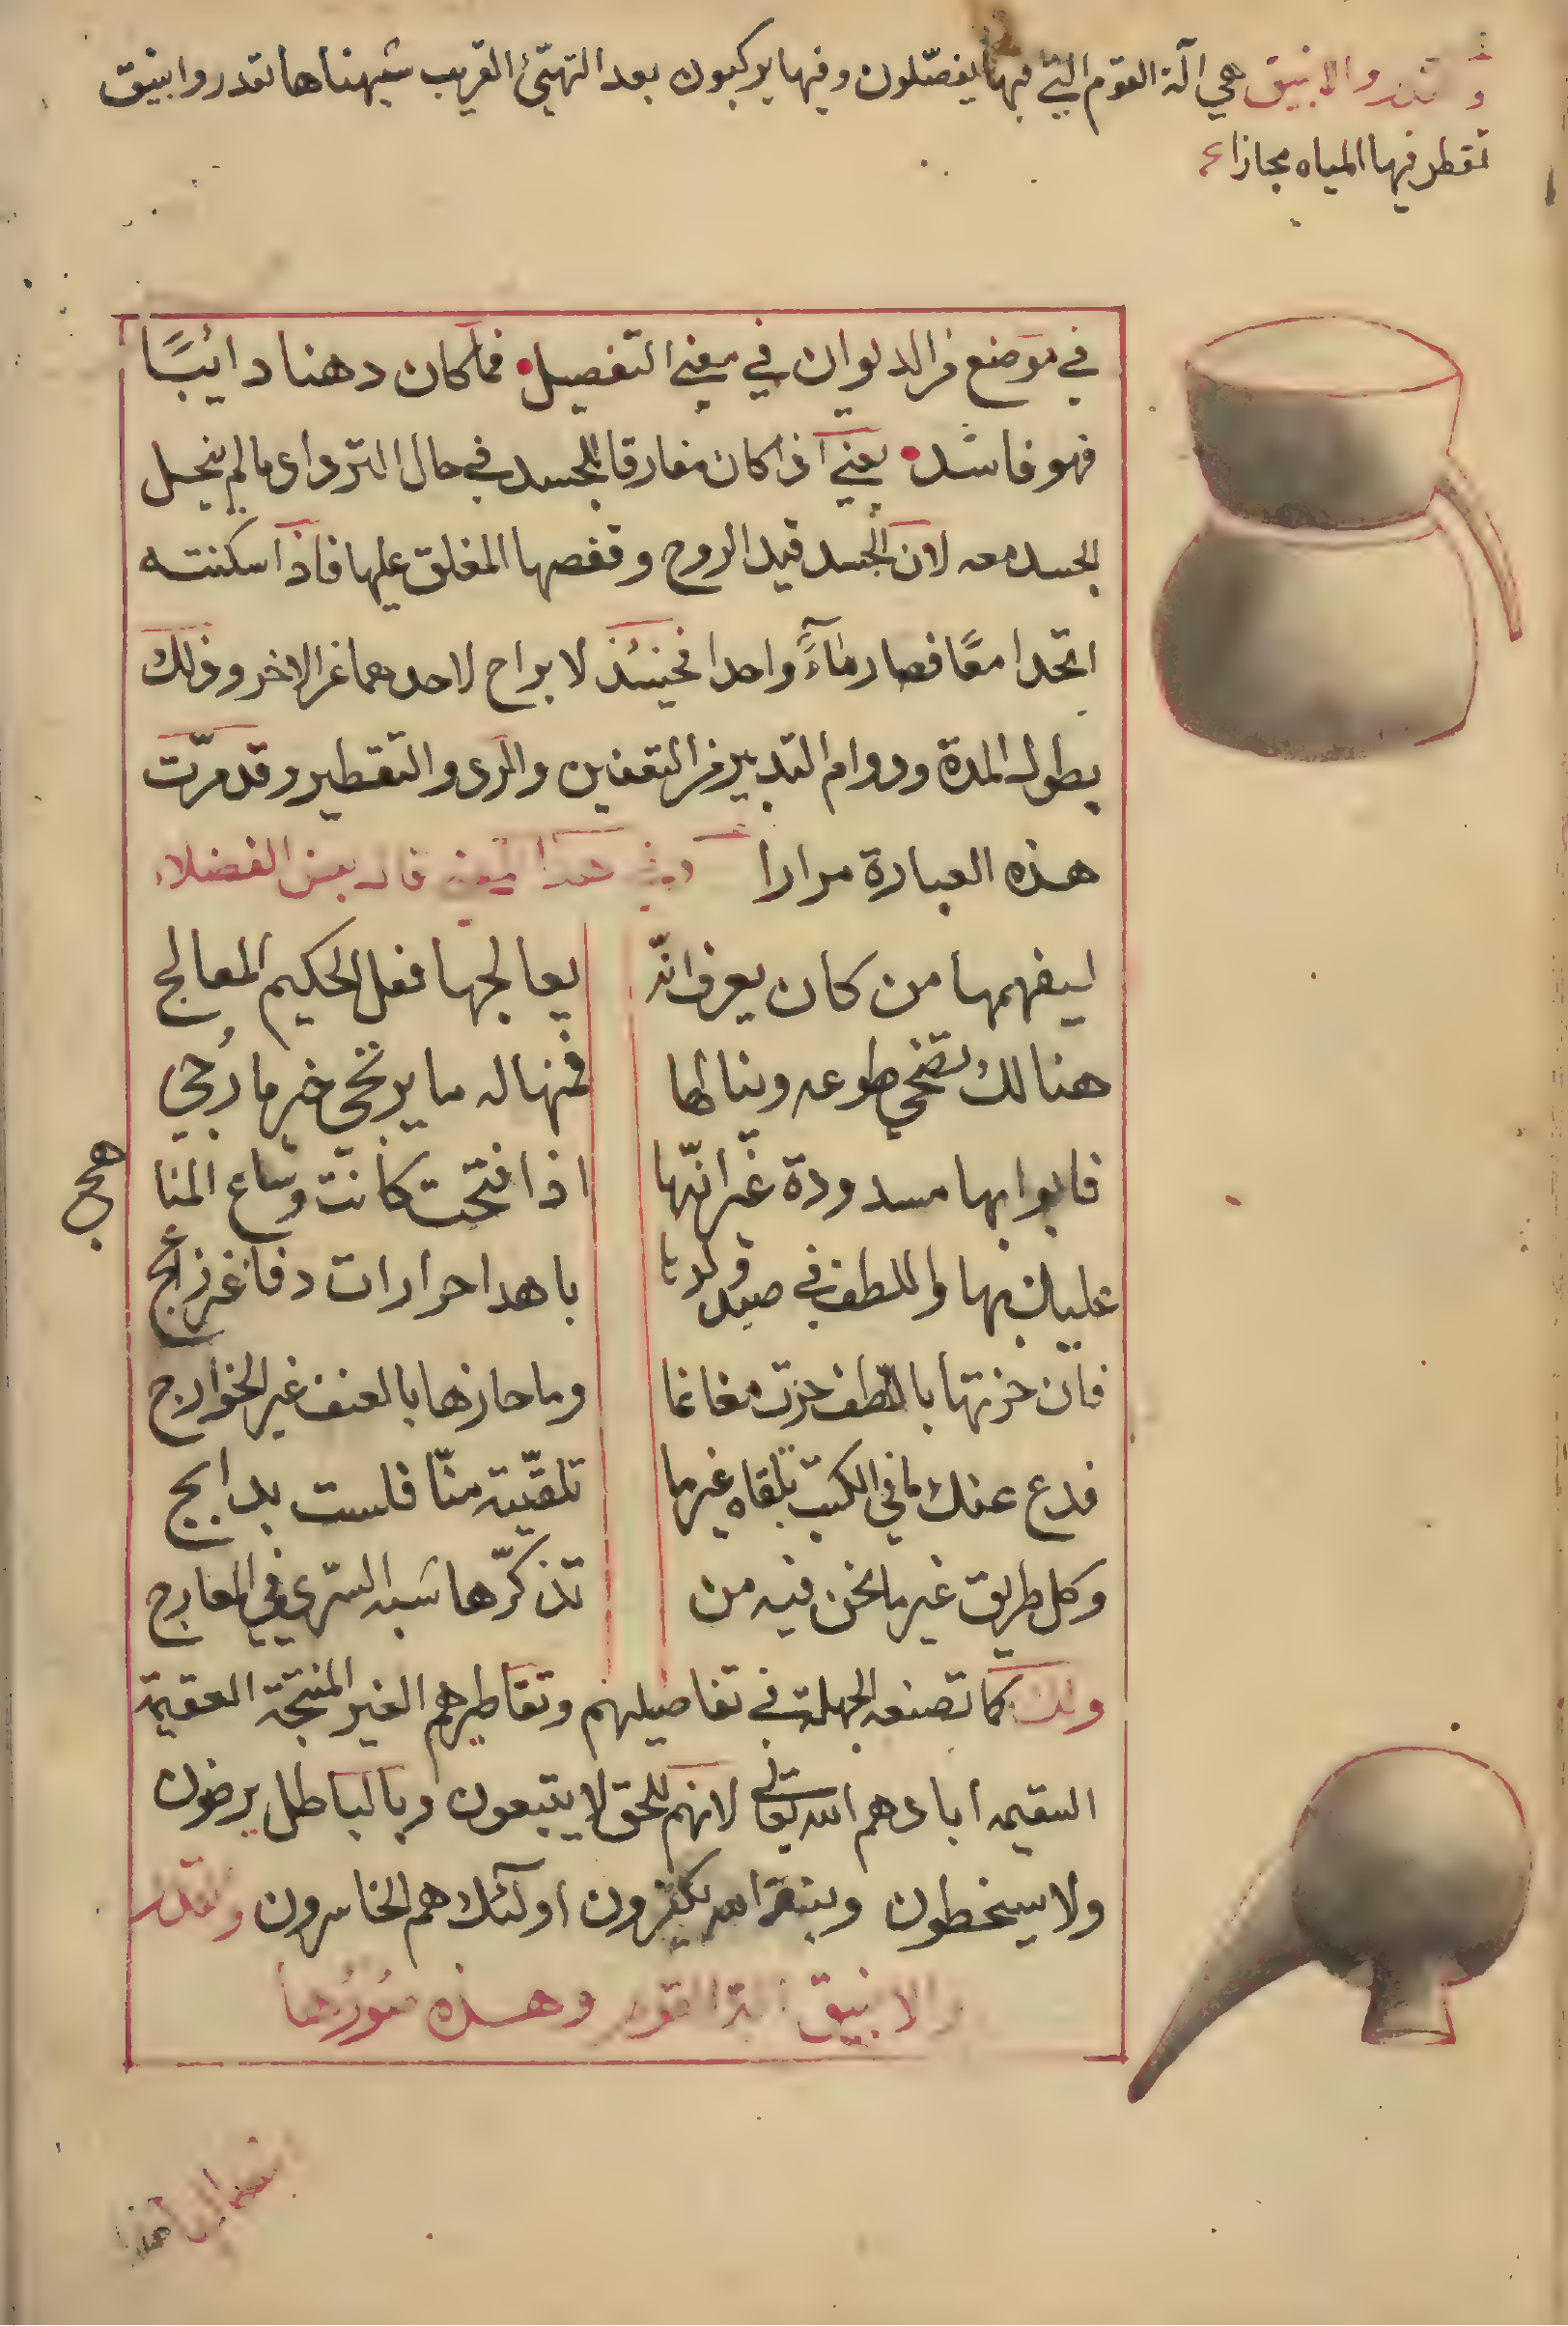 والقدر والانبيق هي آلة القوم التي فيها يفصّلون وفيها يركبون بعد التهيّئ القريب شبهناها بقدر وانبيق
تقطر فيها المياه مجازاء
في موضع من الديوان في معنى التفصيل فما كان دهنا دائبًا
فهو فاشد يعني اذا كان مفارقا للجسد في حال التزو اى ما لم ينحل
الجسد معه لان الجسد قيد الروح وقفصها المغلق عليها فاذا سكنته
اتحدا معًا فصار ماءً واحدا فحينئذ لا براح لاحدهما عن الاخر وذلك
بطول المدة ودوام التدبير من التعفين والرى والتقطير وقد مرّت
هذه العبارة مرارا وفي هذا المعنى قال بعض الفضلاء
ليفهمها من كان يعرف انّه يعالجها فعل الحكيم المعالج
هنالك تضحي طوعه وينالها فمنها له ما يرتجي خير ما رُجي
فابوابها مسدودة غير انّها اذا فتحت كانت وساع المنا
هج
عليك بها واللطف في صيد باهدا حرارات دفا غير زاعج
فان حزتها باللطف حزت مغانما وما حازها بالعنف غير الخوارج
فدع عنك ما في الكتب تلقاه غير ما تلقّيته منّا فلست بدابج
وكل طريق غير ما نحن فيه من تذكّرها شبه السري في المعارج
ولك كما تصنعه الجهلة في تفاصيلهم وتقاطيرهم الغير المنتجة العقيمة
السقيمه ابادهم الله تعالى لانهم للحق لا يتبعون وبالباطل يرضون
ولا يسخطون وبنعمة الله يكفرون اولئك هم الخاسرون والقدر
والانبيق وهذه صورهما